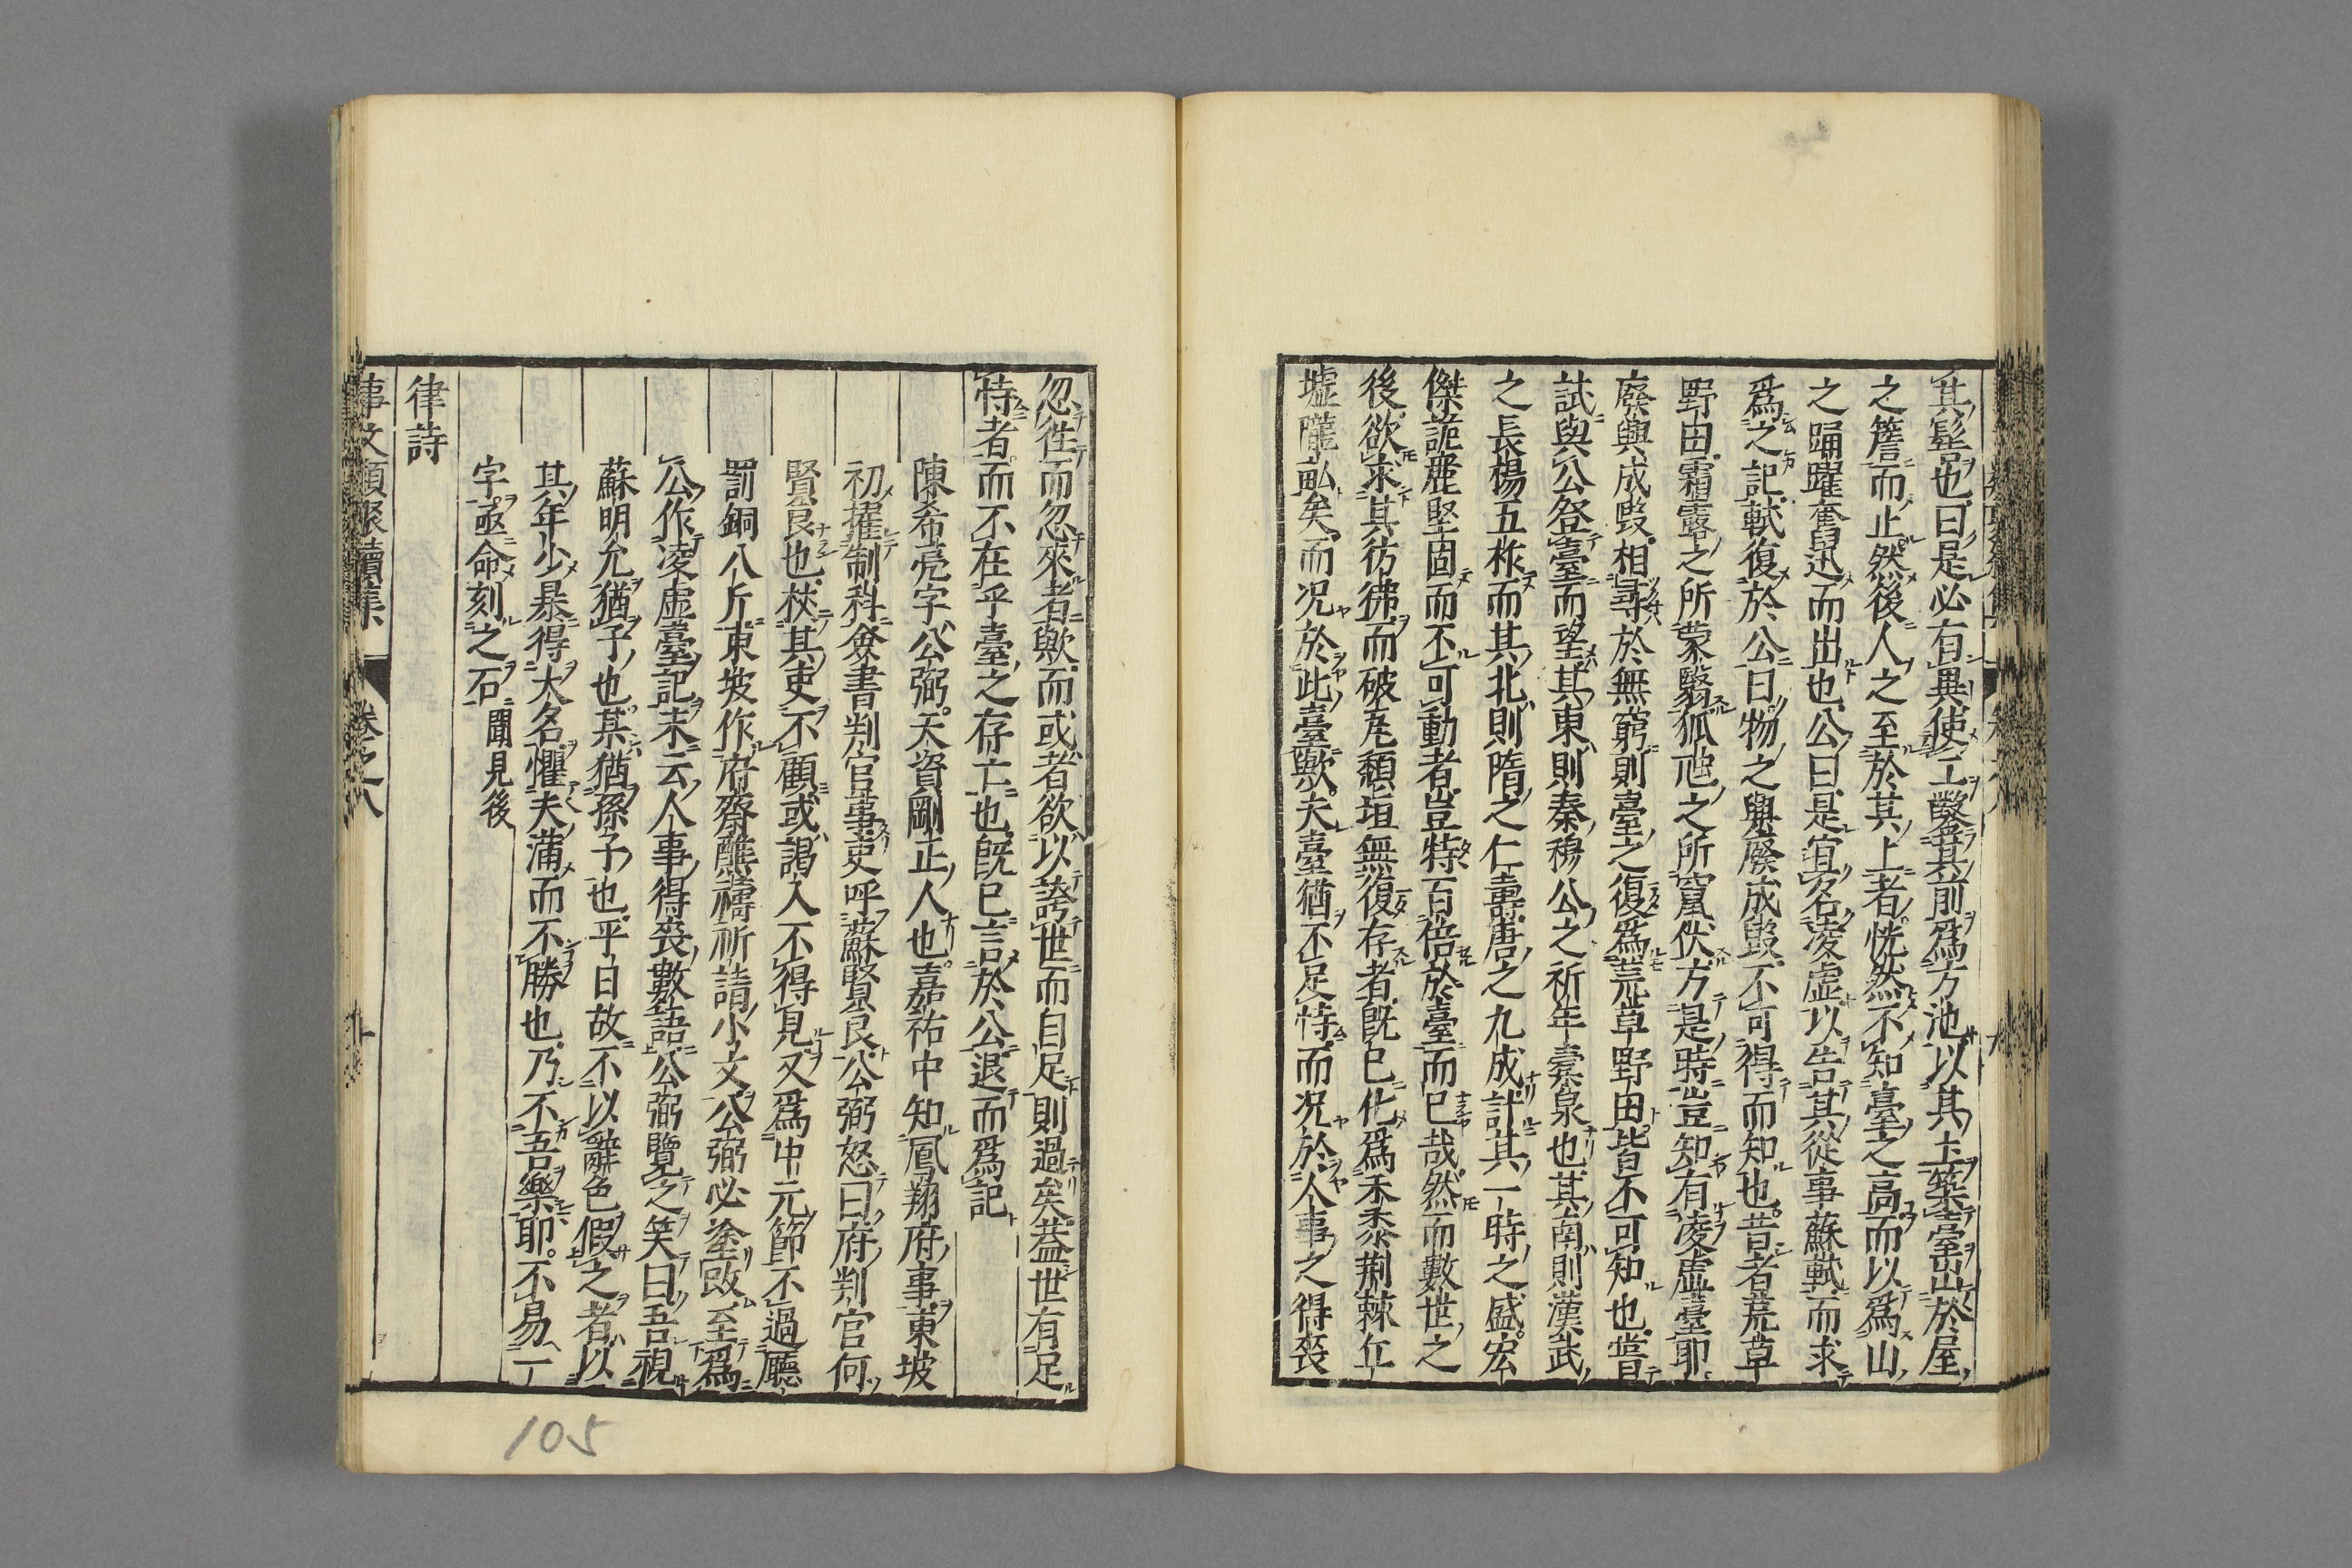 其髻也曰是必有異使工鑿其前爲方池以其土築臺出於屋
之簷而止然後人之至於其上者恍然不知臺之高而以爲山
之踊躍奮迅而出也公曰是冝名凌虛以告其從事蘇軾而求
爲之記軾復於公曰物之興廢成毀不可得而知也昔者荒草
野田霜露之所蒙翳狐虺之所竄伏方是時豈知有凌虛臺耶
廢興成毀相尋於無窮則臺之復爲荒草野田皆不可知也嘗
試與公登臺而望其東則秦穆公之祈年橐泉也其南則漢武
之長楊五柞而其北則隋之仁壽唐之九成計其一時之盛宏
傑詭麗堅固而不可動者豈特百倍於臺而已哉然而數世之
後欲求其彷彿而破瓦頹垣無復存者旣已化爲禾黍荆棘丘
墟隴畝矣而况於此臺歟夫臺猶不足恃而况於人事之得喪
忽徃而忽來者歟而或者欲以誇世而自足則過矣葢世有足
恃者而不在乎臺之存亡也旣已言於公退而爲記
陳希亮字公弼天資剛正人也嘉祐中知鳳翔府事東坡
初擢制科僉書判官事吏呼蘇賢良公弼怒曰府判官何
賢良也杖其吏不顧或謁入不得見又爲中元節不過廳
罰銅八斤東坡作府齋醮禱祈請小文公弼必塗改至爲
公作凌虛臺記末云人事得喪數語公弼覽之笑曰吾視
蘇明允猶子也某猶孫子也平日故不以辭色假之者以
其年少暴得大名懼夫滿而不勝也乃不吾樂耶不易一
字亟命刻之石聞見後
律詩
事文類聚續集 卷之八 十
105